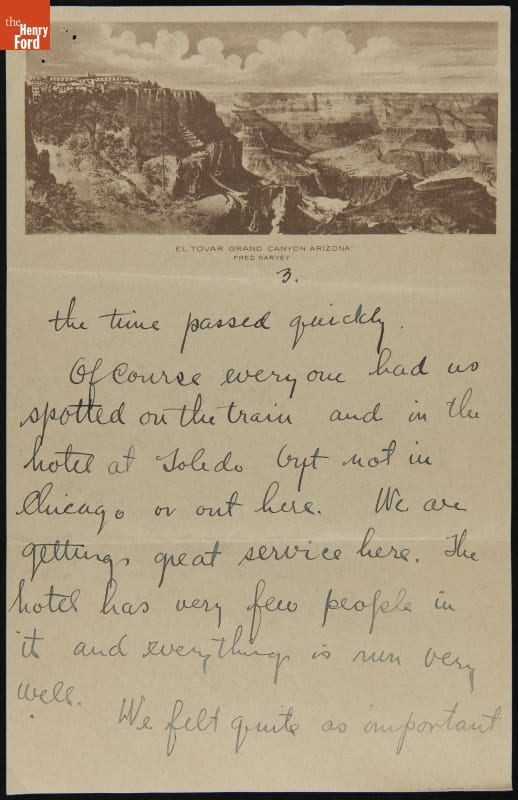 the
Henry
Ford
EL TOVAR GRAND CANYON ARIZONA
FRED HARVEY
3.
the time passed quickly.
Of course every one had us
spotted on the train and in the
hotel at Toledo byt not in
Chicago or out here. We are
gettings great service here. The
hotel has very few people in
it and everything is run very
well.
We felt quite as important